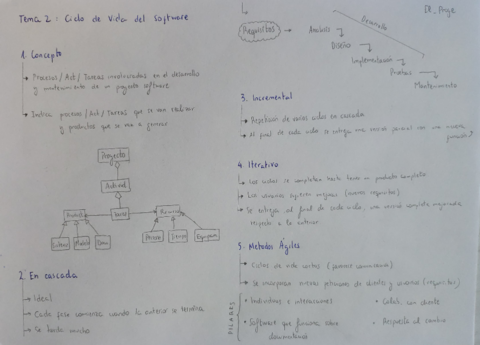 Tema 2: Ciclo de Vida del Software
1. Concepto
Procesos/Act/Tareas involucradas en el desarrollo
y mantenimiento de un proyecto software
Indica procesos/Act/tareas que se van a realizar
y productos que se van a generar
Proyecto
Actividad
Producto
Tarea
Recurso
Modelo
Doc.
Persona
Tiempo
Equipam.
2. En cascada
Ideal
Cada fase comienza cuando la anterior se termina
Se tarda mucho
Requisitos
Análisis
Diseño
Implementación
Pruebas
Mantenimiento
Desarrollo
3. Incremental
Repetición de varios ciclos en cascada
Al final de cada ciclo se entrega una versión parcial con una nueva
4. Iterativo
Los ciclos se completan hasta tener un producto completo
Los usuarios sugieren mejoras (nuevos requisitos)
Se entrega al final de cada ciclo, una versión completa mejorada
respecto a la anterior
5. Métodos Ágiles
Ciclos de vida cortos
Se incorporan nuevas peticiones de clientes y usuarios (requisitos)
PILARES
Individuos e interacciones
Colab. con cliente
Software que funciona sobre
documentación
Respuesta al cambio